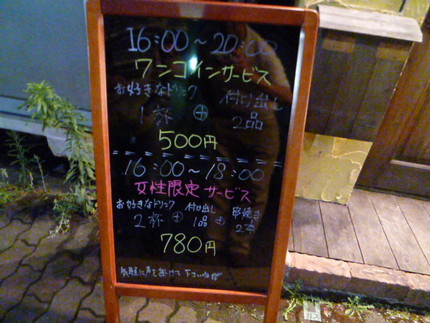 16:00〜20:00
ワンコインサービス
お好きなドリンク 付け出し
1杯 + 2品
500円
16:00〜18:00
女性限定サービス
お好きなドリンク 付け出し 串焼き
2杯 + 1品 + 2本
780円
気軽に声を掛けて下さいませ